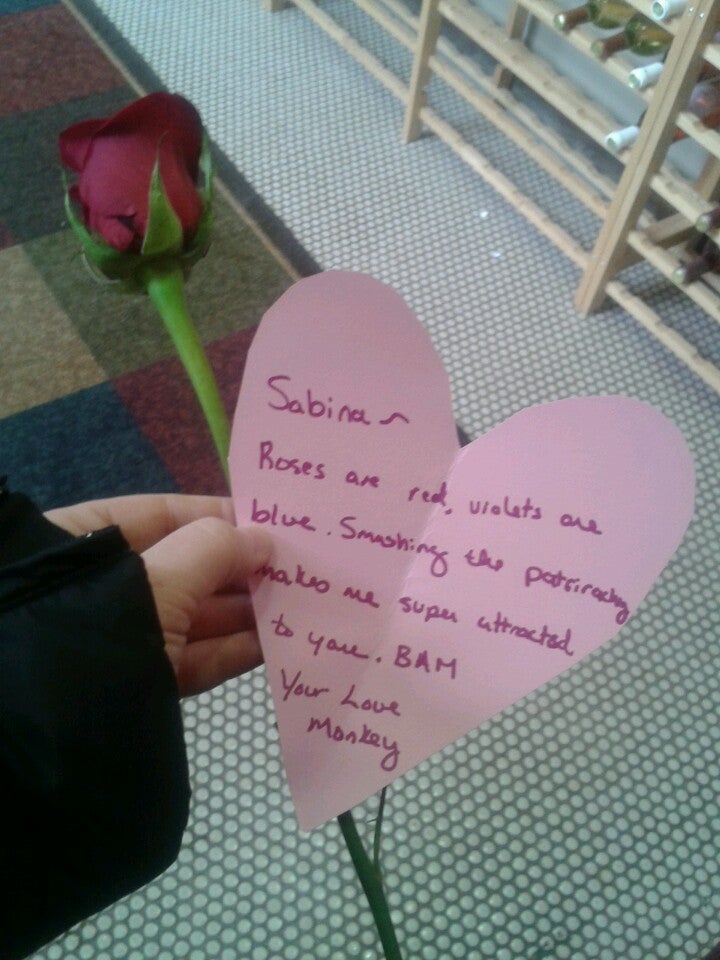 Sabina~
Roses are red, violets are
blue. Smashing the patriarchy
makes me super attracted
to you. BAM
Your Love
Monkey